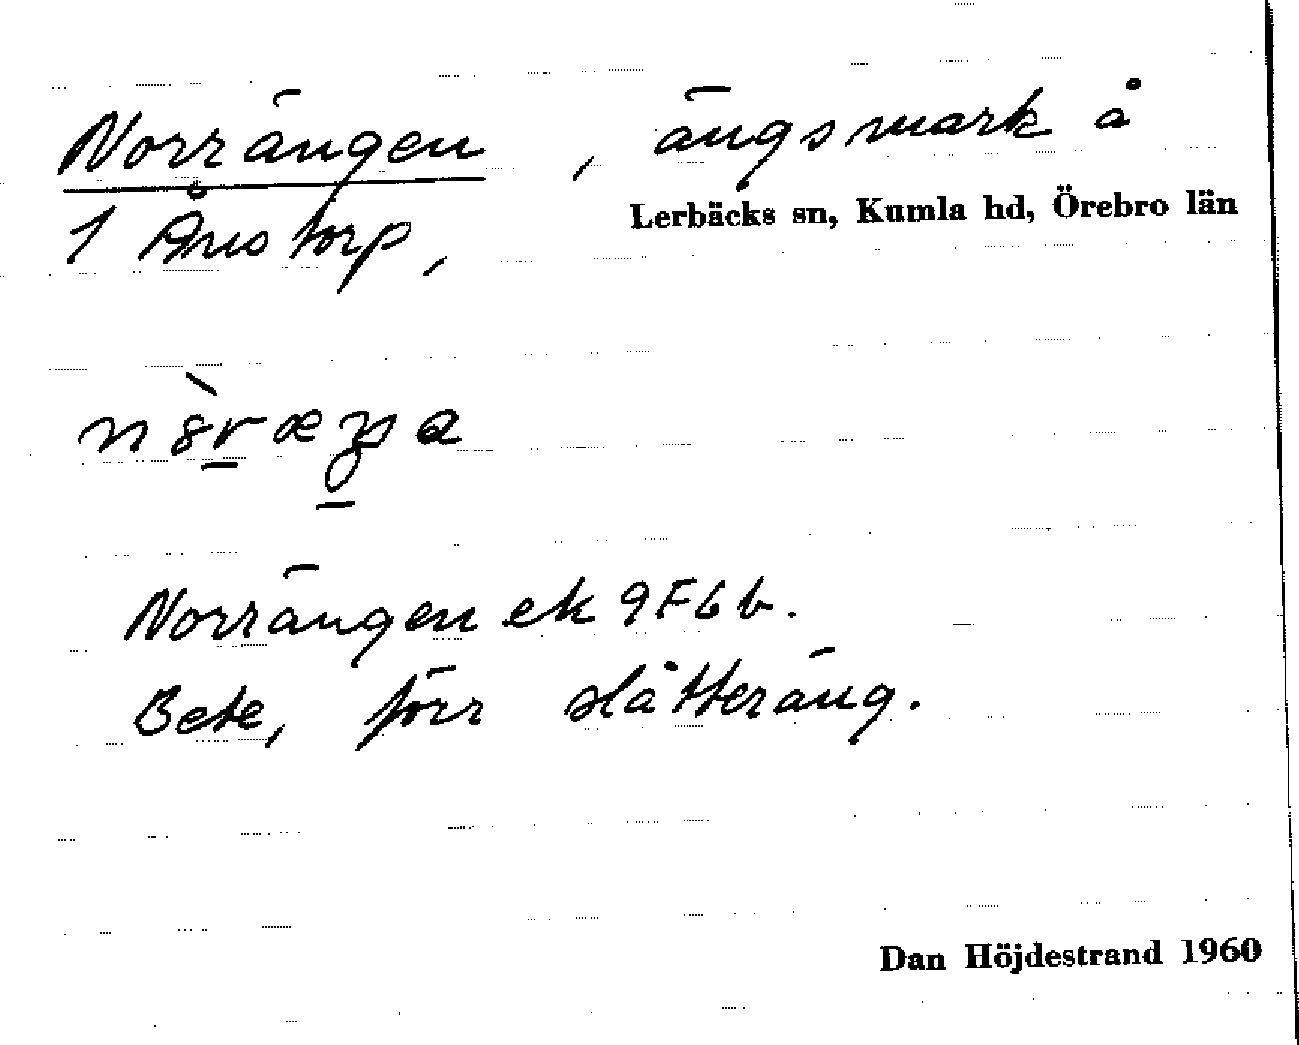 Norrängen, ängsmark å
1 Ånstorp,
Lerbäcks sn, Kumla hd, Örebro län
Norrängen ek 9F6b.
Bete, förr slåtteräng.
Dan Höjdestrand 1960